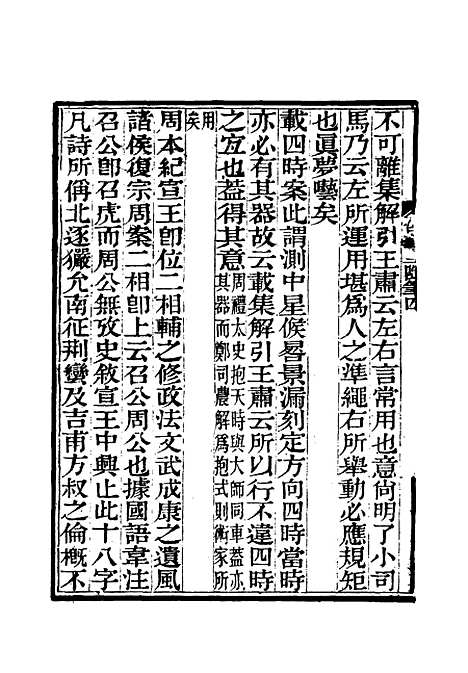 不可離集解引王肅云左右言常用也意尙明了小司
馬乃云左所運用堪爲人之準繩右所舉動必應規矩
也眞夢囈矣
載四時案此謂測中星候晷景漏刻定方向四時當時
亦必有其器故云載集解引王肅云所以行不違四時
之宐也蓋得其意周禮太史抱天時與大師同車蓋亦
其器而鄭司農解爲抱式則術家所
用
矣
周本紀宣王卽位二相輔之修政法文武成康之遺風
諸侯復宗周案二相卽上云召公周公也據國語韋注
召公卽召虎而周公無攷史敘宣王中興止此十八字
凡詩所偁北逐玁允南征荆蠻及吉甫方叔之倫槪不